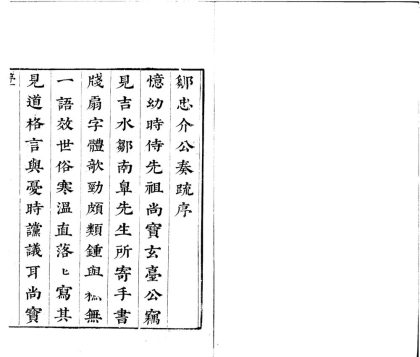 鄒忠介公奏疏序
憶幼時侍先祖尚寶玄臺公竊
見吉水鄒南皋先生所寄手書
牋扇字體歌勁頗類鍾
無
一語效世俗寒溫直落匕寫其
見道格言與憂時讜議耳尚寶